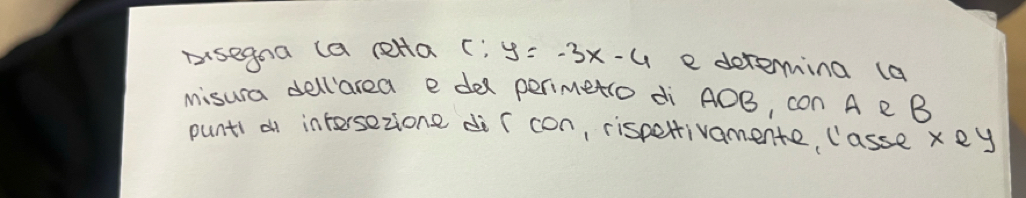 Disegna la retta r: y = -3x - 4 e determina la
misura dell'area e del perimetro di AOB, con A e B
punti di intersezione di r con, rispettivamente, l'asse x e y